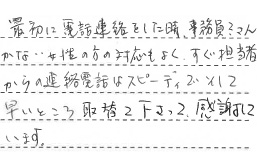 最初に電話連絡をした時、事務員さん
かな‥女性の方の対応もよく、すぐ担当者
からの連絡電話はスピーディでそして
早いところ取替て下さって、感謝して
います。